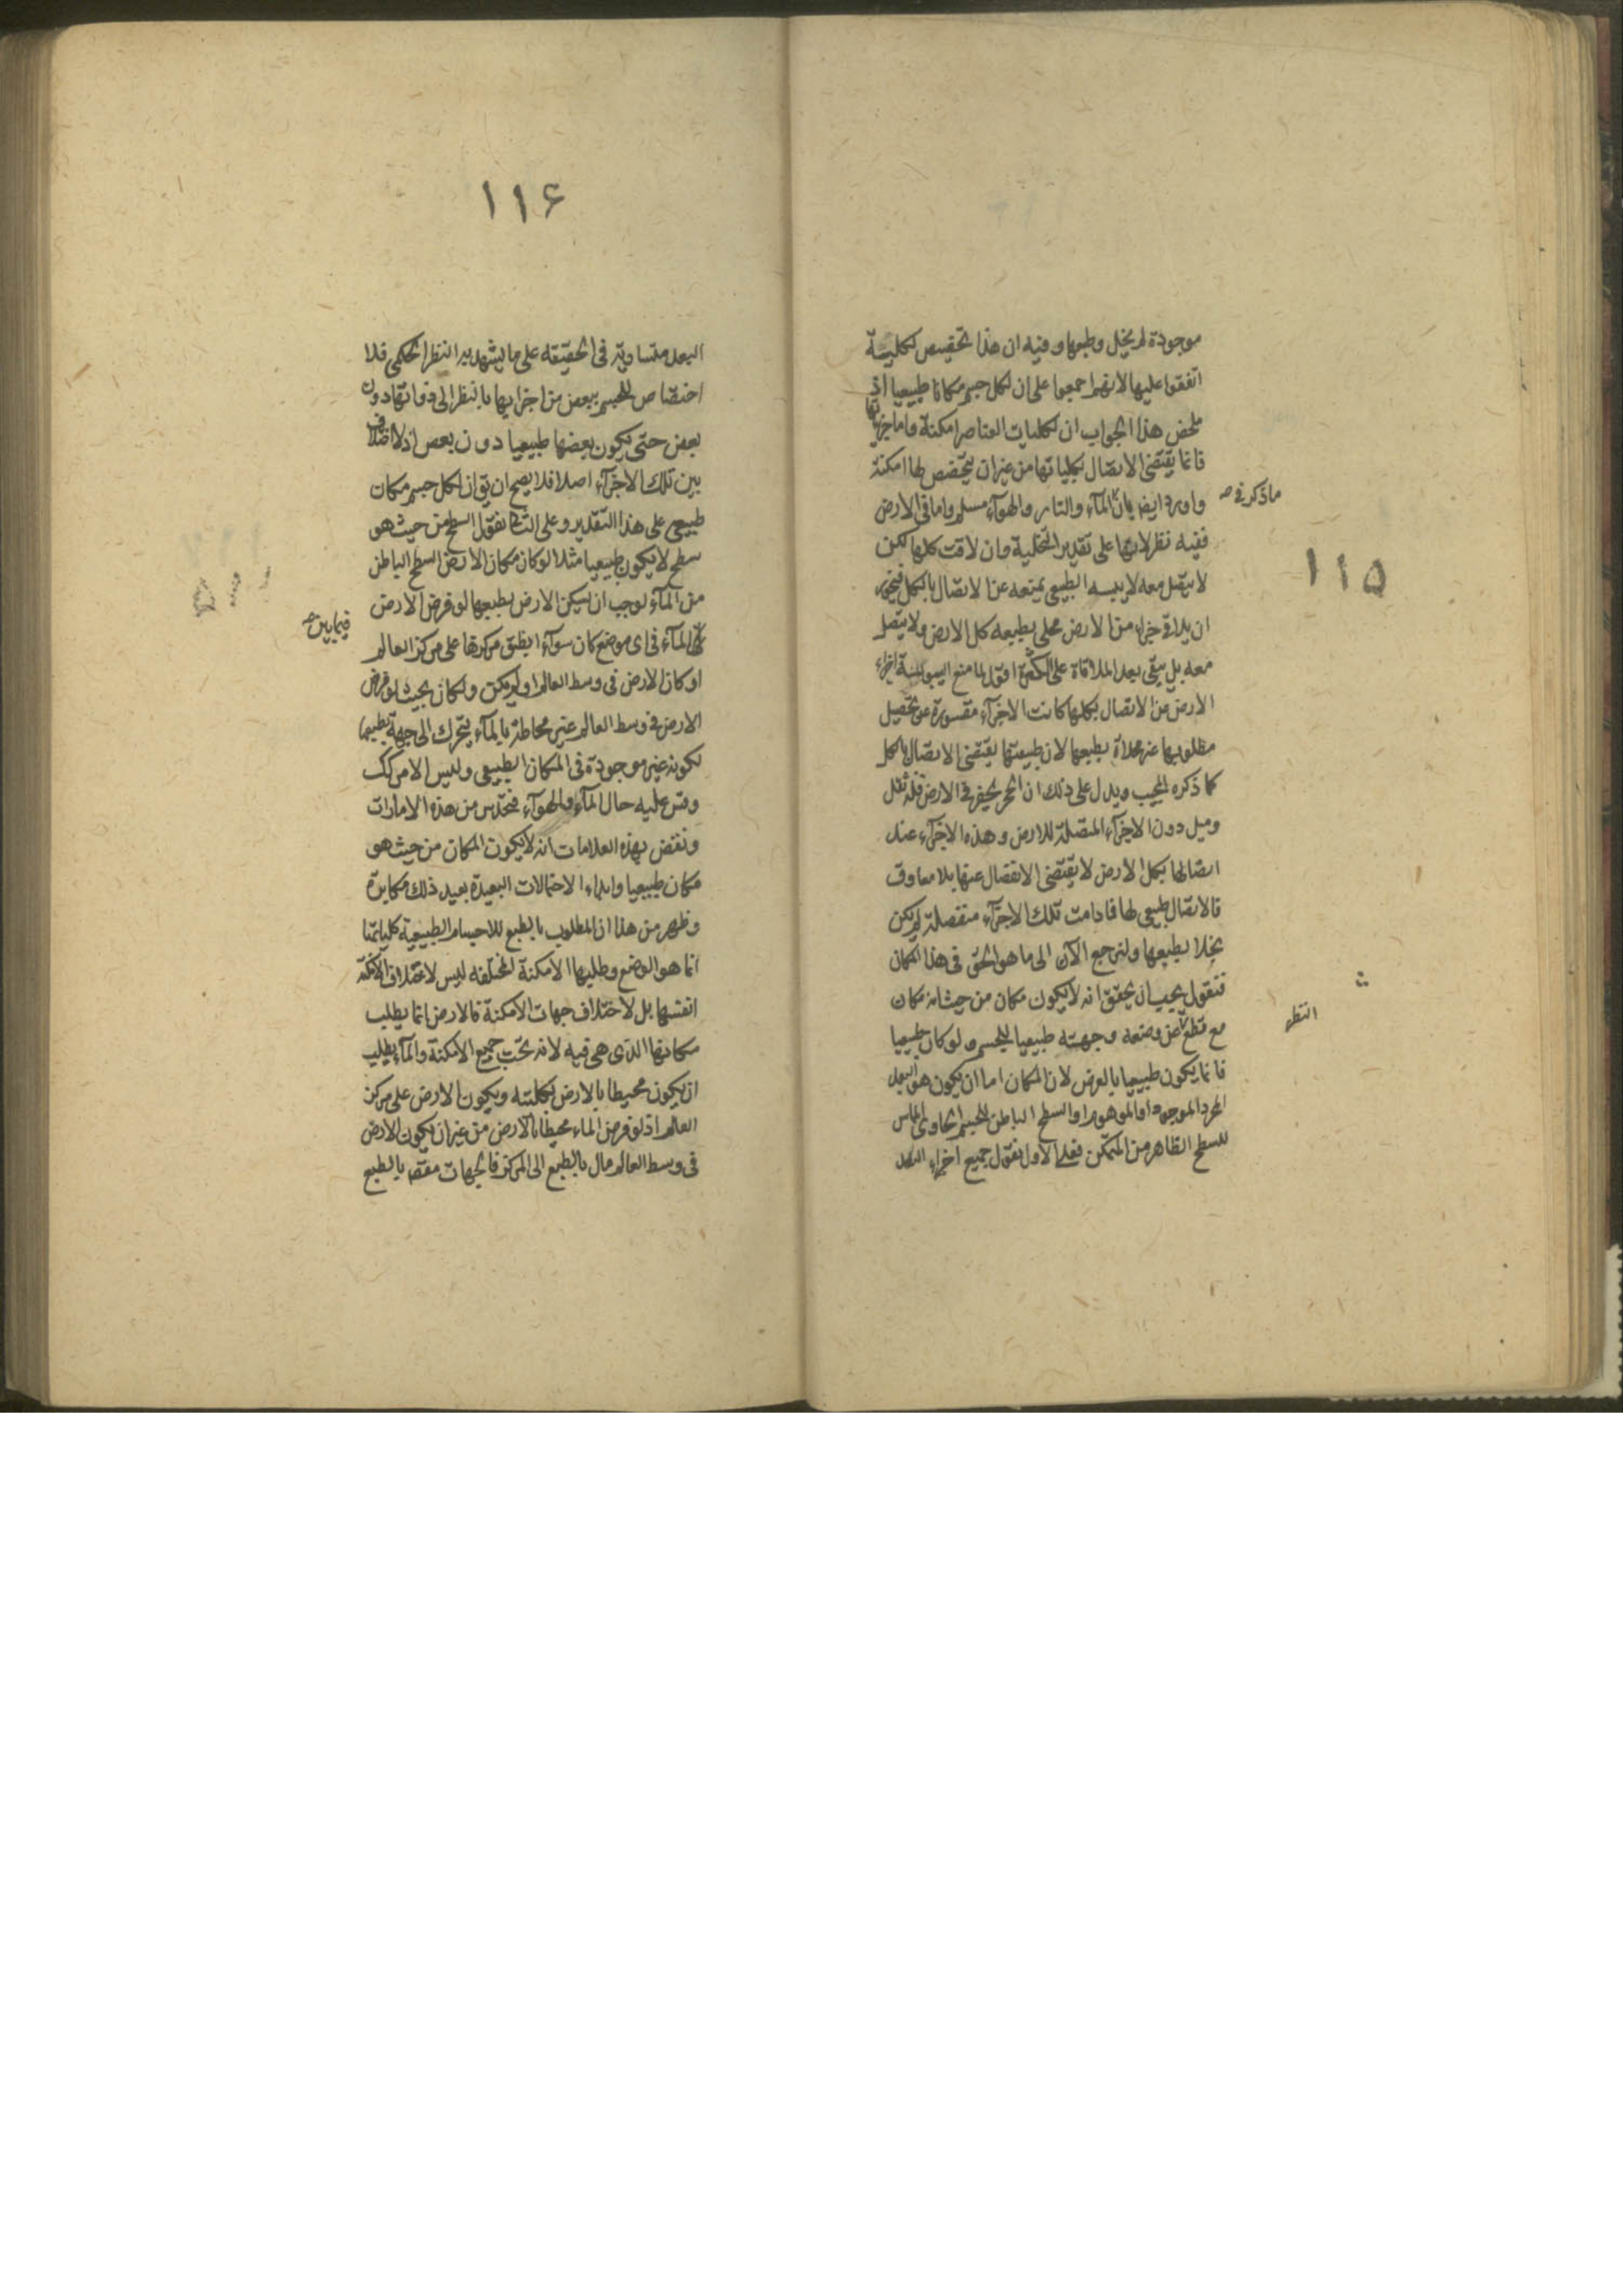 موجودة لم يخل وطبعها وفيه ان هذا تخصيص لكلية
اتفقوا عليها لانهم اجمعوا على ان لكل جسم مكانا طبيعيا اذ
ملخص هذا الجواب ان لكليات العناصر امكنة واما جزئياتها
فانما يقتضى الاتصال بكلياتها من غير ان يتخصص لها امكنة
ما ذكر فى صه
واورد ايضا بان الماء والنار والهواء مسلم واما فى الارض
ففيه نظر لانها على تقدير التخلية وان لاقت كلها لكن
۱۱۵
لا يتصل معه لا يبسه الطبيعى يمنعه عن الاتصال بالكل فيجوز
ان يلاقى جزء من الارض مخلى بطبعه كل الارض ولا يتصل
معه بل يبقى بعد الملاقاة على الكثرة اقول لما منع اليبوسة اجزاء
الارض عن الاتصال بكلها كانت الاجزاء مقسورة عن تحصيل
مطلوبها غير مخلاة بطبعها لان طبيعتها يقتضى الاتصال بالكل
كما ذكره المجيب ويدل على ذلك ان الحجر يحفر فى الارض فله ثقل
وميل دون الاجزاء المتصلة للارض وهذه الاجزاء عند
اتصالها بكل الارض لا يقتضى الانفصال عنها بلا معاوق
فالاتصال طبيعى لها فما دامت تلك الاجزاء منفصلة لم يكن
يخلا بطبعها ولنرجع الآن الى ما هو الحق فى هذا المكان
فنقول يجب ان يحقق انه لا يكون مكان من حيث انه مكان
النظر
مع قطع عن وضعه وجهته طبيعيا للجسم ولو كان طبيعيا
فانما يكون طبيعيا بالعرض لان المكان اما ان يكون هو البعد
المجرد الموجود او الموهوم او السطح الباطن للجسم الحاوى المماس
للسطح الظاهر من المتمكن فعلى الاول نقول جميع اجزاء البعد
۱۱۶
البعد متساوية فى الحقيقة على ما يشهد به النظر الحكمى فلا
اختصاص للجسم ببعض من اجزائها بالنظر الى ذواتها دون
بعض حتى يكون بعضها طبيعيا دون بعض اذ لا اختلاف
بين تلك الاجزاء اصلا فلا يصح ان يق ان لكل جسم مكان
طبيعى على هذا التقدير وعلى الثانى نقول السطح من حيث هو
سطح لا يكون طبيعيا مثلا لو كان مكان الارض السطح الباطن
من الماء لوجب ان يسكن الارض بطبعها لو فرض الارض
فيما بين صه
الماء فى اى موضع كان سواء انطبق مركزها على مركز العالم
او كان الارض فى وسط العالم او لم يكن ولكان بحيث لو فرض
الارض فى وسط العالم غير محاطة بالماء يتحرك الى جهة بطبعها
لكونه غير موجودة فى المكان الطبيعى وليس الامر كك
وقس عليه حال الماء والهواء فتحدس من هذه الامارات
ونقض بهذه العلامات انه لا يكون المكان من حيث هو
مكان طبيعيا وابداء الاحتمالات البعيدة بعيد ذلك مكابرة
وظهر من هذا ان المطلوب بالطبع للاجسام الطبيعية كلياتها
انما هو الوضع وطلبها الامكنة المختلفه ليس لاختلاف الامكنة
انفسها بل لاختلاف جهات الامكنة فالارض انما يطلب
مكانها الذى هى فيه لانه تحت جميع الامكنة والماء يطلب
ان يكون محيطا بالارض لكليته ويكون الارض على مركز
العالم اذ لو فرض الماء محيطا بالارض من غير ان يكون الارض
فى وسط العالم مال بالطبع الى المركز فالجهات مقتضه بالطبع